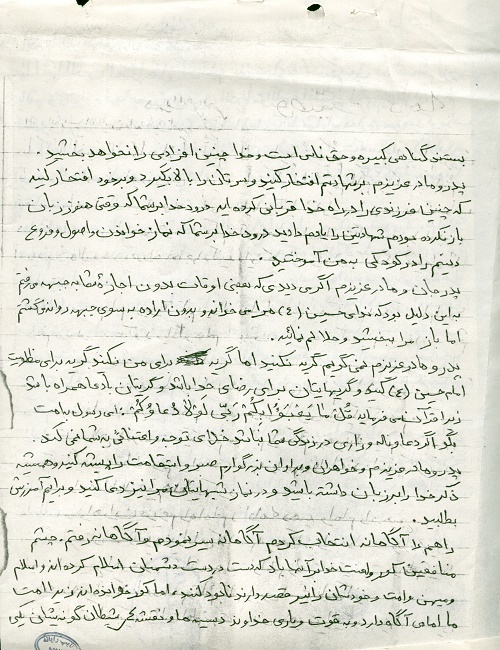 هستند گناهی کبیره و حق ناس است و خدا چنین افرادی را نخواهد بخشید .
پدر و مادر عزیزم برشهادتم افتخار کنید و سرتان را بالا بگیرید و بر خود افتخار کنید
که چنین فرزندی را در راه خدا قربانی کرده اید . درود خدا بر شما که وقتی هنوز زبان
باز نکرده بودم شهادتین را یادم دادید درود خدا بر شما که نماز خواندن و اصول و فروع
دینم را در کودکی به من آموختید .
پدر جان و مادر عزیزم اگر می دیدی که بعضی اوقات بدون اجازه شما به جبهه می رفتم
به این دلیل بود که ندای حسین (ع) مرا می خواند و بدون اراده به سوی جبهه روانه می گشتم
اما باز مرا ببخشید و حلالم نمائید .
پدر و مادر عزیزم نمی گویم گریه نکنید اما گریه برای من نکنید گریه برای مظلومی
امام حسین (ع) کنید و گریه هایتان برای رضای خدا باشد و گریتان با دعا همراه باشد
زیرا قرآن می فرماید قُل ما یَعبَؤُا بِکُم رَبّی لَولا دُعاؤُکُم . ای رسول به امت
بگو اگر دعا و ناله و زاری در زندگی شما نباشد خدای توجه و اعتنائی به شما نمی کند .
پدر و مادر عزیزم و خواهران و برادران بزرگوارم صبر و استقامت را پیشه کنید و همیشه
ذکر خدا را بر زبان داشته باشد و در نماز شبهایتان مرا نیز دعا کنید و برایم آمرزش
بطلبید .
راهم را آگاهانه انتخاب کردم آگاهانه پیمودم و آگاهانه رفتم . چشم
منافقین کور و لعنت خدا بر آنها باد که دست در دست دشمنان اسلام کرده اند و اسلام
و میهن و امت و خودشان را نیز قصد دارند نابود کنند ، اما کور خوانده اند زیرا امت
ما امامی آگاه دارد و به قوت و یاری خداوند دسیسه ها و نقشه های شیطان گونه شان یکی